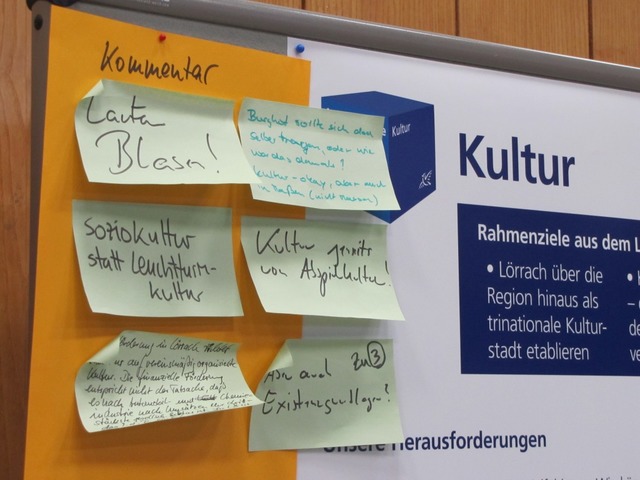 Kommentar
Lauter
Blasen!
Burghof sollte sich dann
selber tragen, oder wie
war das damals?
Kultur - okay, aber auch
in Maßen (nicht Massen)
Soziokultur
statt Leuchtturm-
kultur
Kultur jenseits
von Abspielkultur!
Förderung in Lörrach
nur auf vereinsmäßig organisierte
Kultur. Die finanzielle Förderung
entspricht nicht der Tatsache, daß
Lörrach und Chemie-
industrie nach
zu 3
Aber auch
Existenzgrundlagen?
Kultur
Kultur
Rahmenziele aus dem L
• Lörrach über die
Region hinaus als
trinationale Kultur-
stadt etablieren
Unsere Herausforderungen